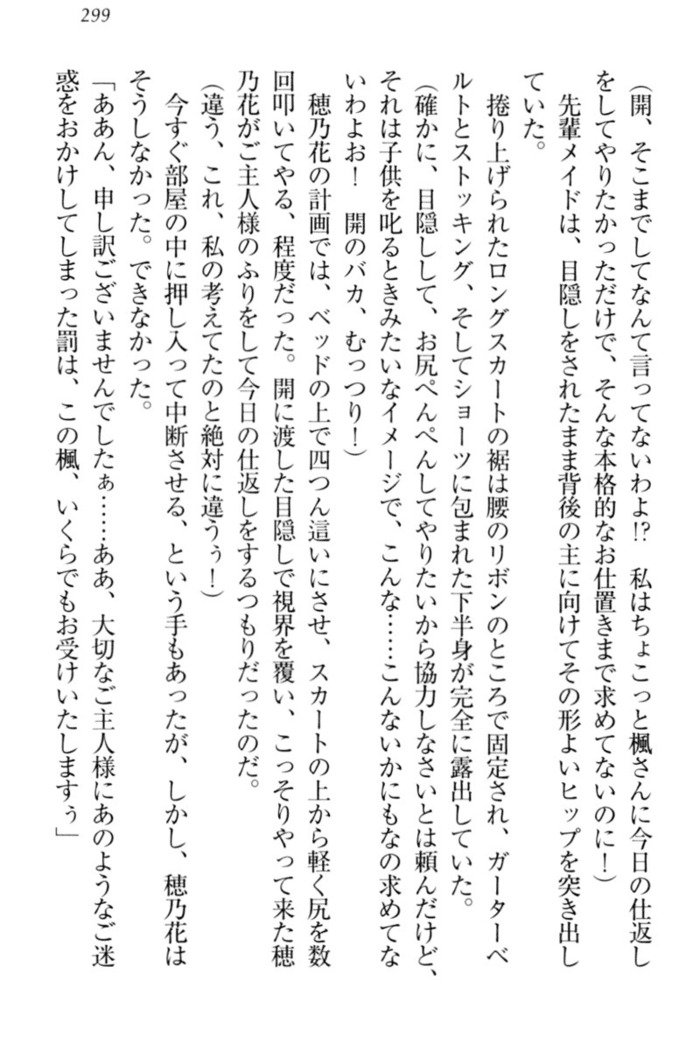 299
（開、そこまでしてなんて言ってないわよ!?　私はちょこっと楓さんに今日の仕返し
をしてやりたかっただけで、そんな本格的なお仕置きまで求めてないのに！）
　先輩メイドは、目隠しをされたまま背後の主に向けてその形よいヒップを突き出し
ていた。
　捲り上げられたロングスカートの裾は腰のリボンのところで固定され、ガーターベ
ルトとストッキング、そしてショーツに包まれた下半身が完全に露出していた。
（確かに、目隠しして、お尻ぺんぺんしてやりたいから協力しなさいとは頼んだけど、
それは子供を叱るときみたいなイメージで、こんな……こんないかにもなの求めてな
いわよお！　開のバカ、むっつり！）
　穂乃花の計画では、ベッドの上で四つん這いにさせ、スカートの上から軽く尻を数
回叩いてやる、程度だった。開に渡した目隠しで視界を覆い、こっそりやって来た穂
乃花がご主人様のふりをして今日の仕返しをするつもりだったのだ。
（違う、これ、私の考えてたのと絶対に違うぅ！）
　今すぐ部屋の中に押し入って中断させる、という手もあったが、しかし、穂乃花は
そうしなかった。できなかった。
「ああん、申し訳ございませんでしたぁ……ああ、大切なご主人様にあのようなご迷
惑をおかけしてしまった罰は、この楓、いくらでもお受けいたしますぅ」